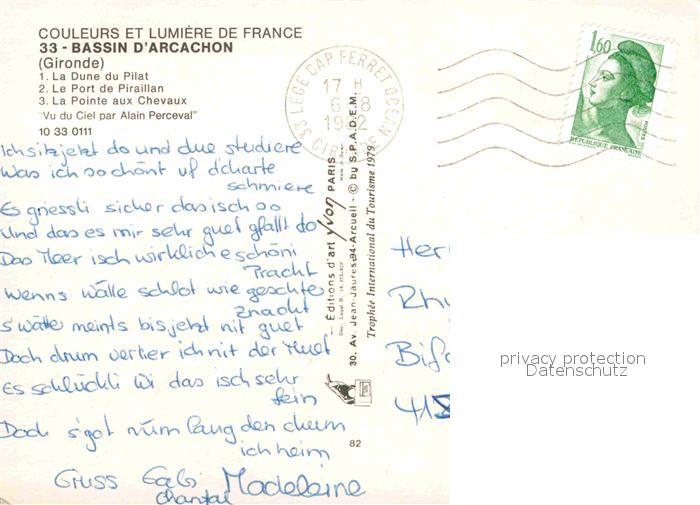 COULEURS ET LUMIÈRE DE FRANCE
33 - BASSIN D'ARCACHON
(Gironde)
1. La Dune du Pilat
2. Le Port de Piraillan
3. La Pointe aux Chevaux
"Vu du Ciel par Alain Perceval"
10 33 0111
Ich sitz jetzt do und due studiere
Was ich so schönt uf d'charte
schmiere
Es griessli sicher das isch so
Und das es mir sehr guet gfallt do
Das Meer isch wirklich e schöni
Pracht
Wenns wälle schlot wie geschter
znacht
s'wätter meints bis jetzt nit guet
Doch drum verlier ich nit der Muet
Es schlückli Wi das isch sehr
fein
Doch s'got nüm lang den chum
ich heim
Gruss Gabi Madeleine
Chantal
33 LEGE CAP FERRET OCEAN
17 H
6 - 8
1982
GIRONDE
Éditions d'art yvon PARIS
30. Av. Jean-Jaurès 94-Arcueil - © by S.P.A.D.E.M.
Trophée International du Tourisme 1979
82
1,60
RÉPUBLIQUE FRANÇAISE
Her
Rhy
Bif
418
privacy protection
Datenschutz